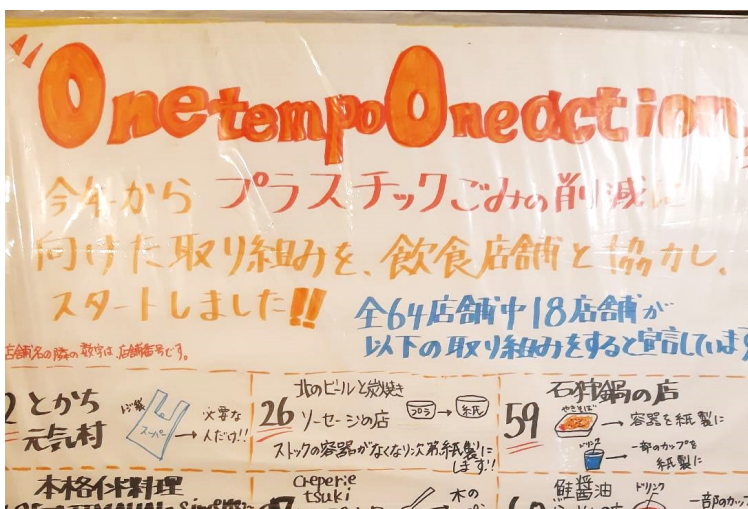 "One tempo One action
今年から プラスチックごみの削減に
向けた取り組みを、飲食店舗と協力し、
スタートしました!!
全64店舗中18店舗が
以下の取り組みをすると宣言しています
店舗名の隣の数字は店舗番号です。
2 とかち
元気村
レジ袋
スーパー
→ 必要な
人だけ!!
26 北のビールと炭焼き
ソーセージの店
プラ → 紙
ストックの容器がなくなり次第紙製に
します!!
59 石狩鍋の店
やきそば
→ 容器を紙製に
ドリンク
→ 一部のカップを
紙製に
本格
料理
creperie
tsuki
木の
鮭醤油
ドリンク
一部のカップ